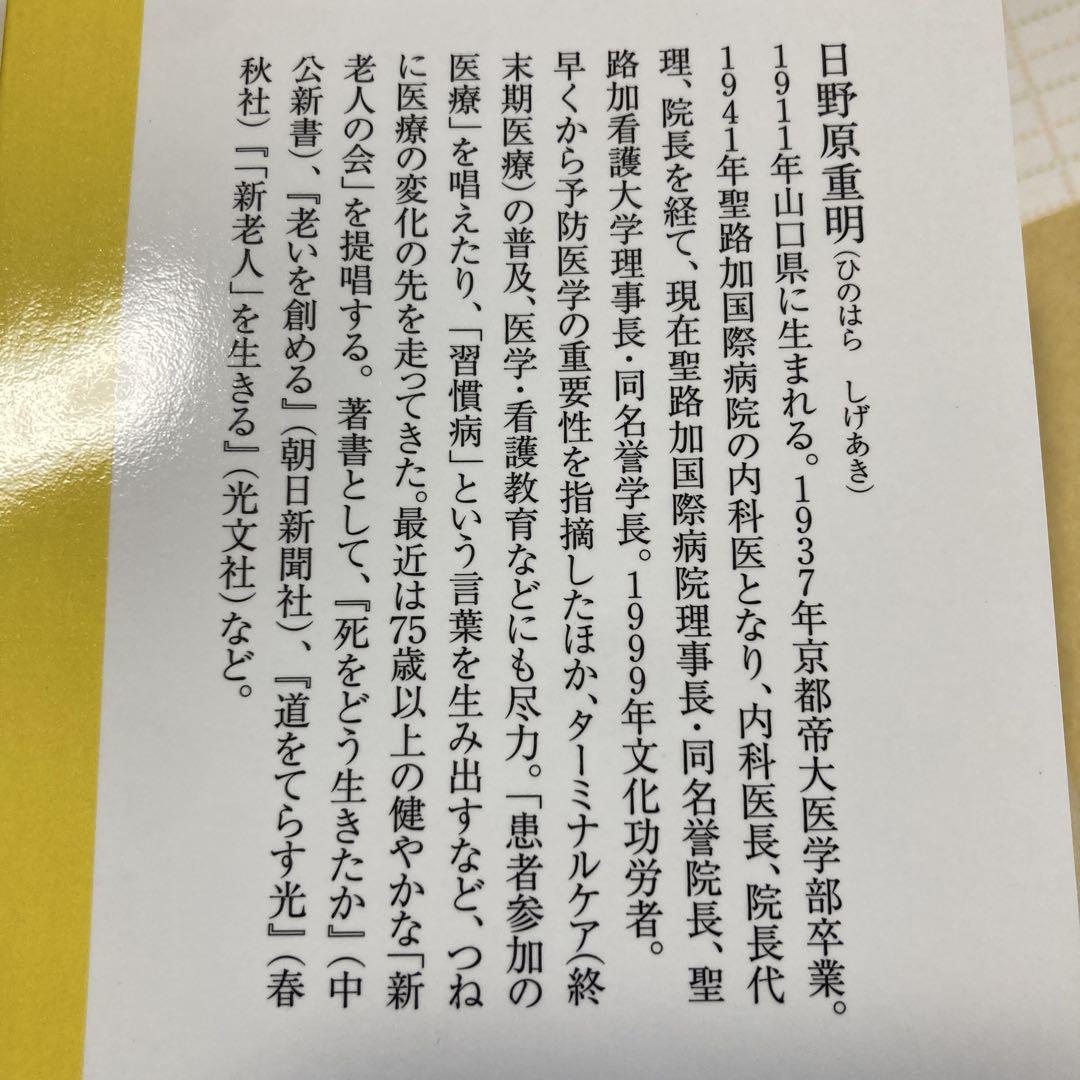 日野原重明（ひのはら しげあき）
1911年山口県に生まれる。1937年京都帝大医学部卒業。
1941年聖路加国際病院の内科医となり、内科医長、院長代
理、院長を経て、現在聖路加国際病院理事長・同名誉院長、聖
路加看護大学理事長・同名誉学長。1999年文化功労者。
早くから予防医学の重要性を指摘したほか、ターミナルケア（終
末期医療）の普及、医学・看護教育などにも尽力。「患者参加の
医療」を唱えたり、「習慣病」という言葉を生み出すなど、つね
に医療の変化の先を走ってきた。最近は75歳以上の健やかな「新
老人の会」を提唱する。著書として、『死をどう生きたか』（中
公新書）、『老いを創める』（朝日新聞社）、『道をてらす光』（春
秋社）『「新老人」を生きる』（光文社）など。